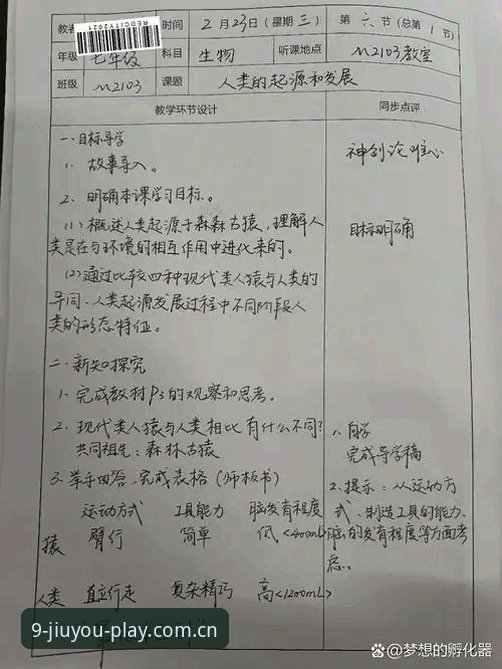 教者 REDCITY2021 时间 2月23日(星期三) 第六节(总第1节)
年级 七年级 科目 生物 听课地点 M2103教室
班级 M2103 课题 人类的起源和发展
教学环节设计 同步点评
一.目标导学
1. 故事导入。
神创论 唯心
2. 明确本课学习目标。
(1)概述人类起源于森森古猿,理解人
类是在与环境的相互作用中进化来的。
目标明确
(2)通过比较四种现代类人猿与人类的
异同、人类起源发展过程中不同阶段人
类的形态特征。
二.新知探究
1.完成教材P3的观察和思考。
2.现代类人猿与人类相比有什么不同?
共同祖先:森林古猿
3.举手回答,完成表格(师板书)
运动方式 工具能力 脑发育程度
猿 臂行 简单 低<400mL
人类 直立行走 复杂精巧 高<1200mL)
1.自学
完成导学稿
2.提示:从运动方
式、制造工具的能力、
脑的发育程度等方面考
虑。
9-jiuyou-play.com.cn
@梦想的孵化器